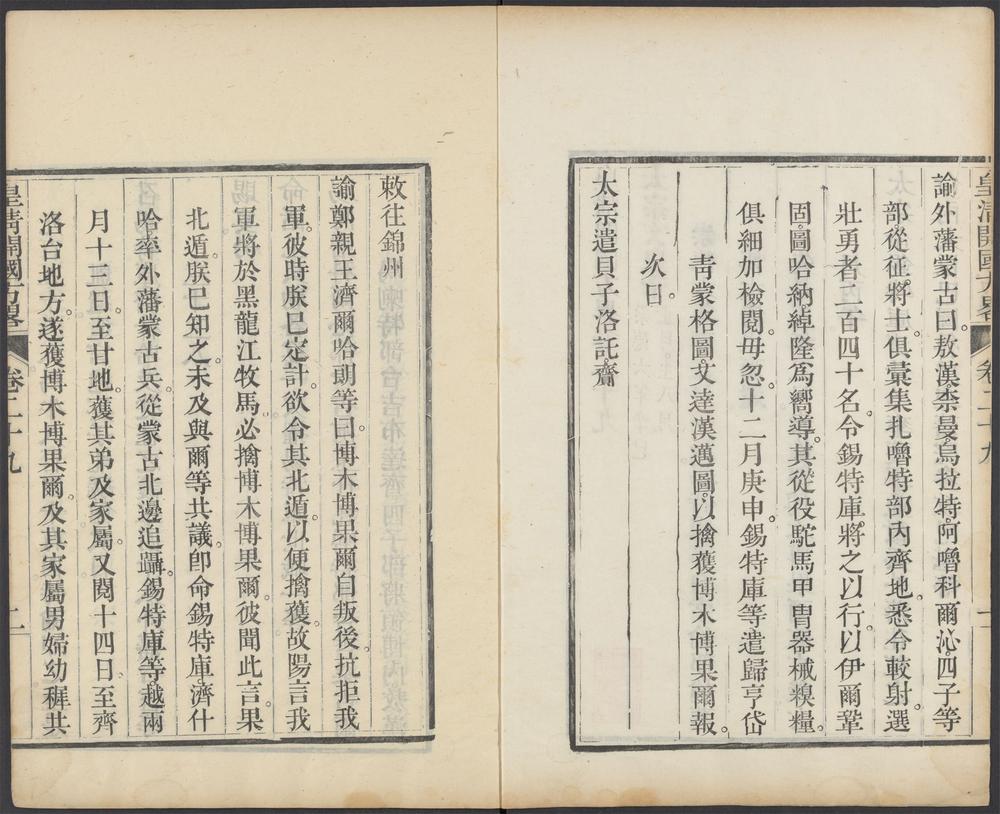 諭外藩蒙古曰。敖漢。柰曼。烏拉特。阿嚕科爾沁。四子等
部從征。將士。俱彚集扎嚕特部內齊地。悉令較射。選
壯勇者二百四十名。令錫特庫。將之以行。以伊爾鞏
固。圖哈納。綽隆爲嚮導。其從役駝馬甲冑器械糗糧。
俱細加檢閱。毋忽。十二月庚申。錫特庫等遣歸亨岱
靑蒙格圖。文達漢邁圖。以擒獲博木博果爾報。
次日。
太宗遣貝子洛託。齎
敕往錦州
諭鄭親王濟爾哈朗等。曰博木博果爾自叛後。抗拒我
軍。彼時朕已定計。欲令其北遁。以便擒獲。故陽言我
軍將於黑龍江牧馬。必擒博木博果爾。彼聞此言。果
北遁。朕已知之。未及與爾等共議。卽命錫特庫。濟什
哈。率外藩蒙古兵。從蒙古北邊追躡。錫特庫等。越兩
月十三日。至甘地。獲其弟及家屬。又閱十四日。至齊
洛台地方。遂獲博木博果爾。及其家屬男婦幼穉共
皇清開國方畧
卷二十九
二